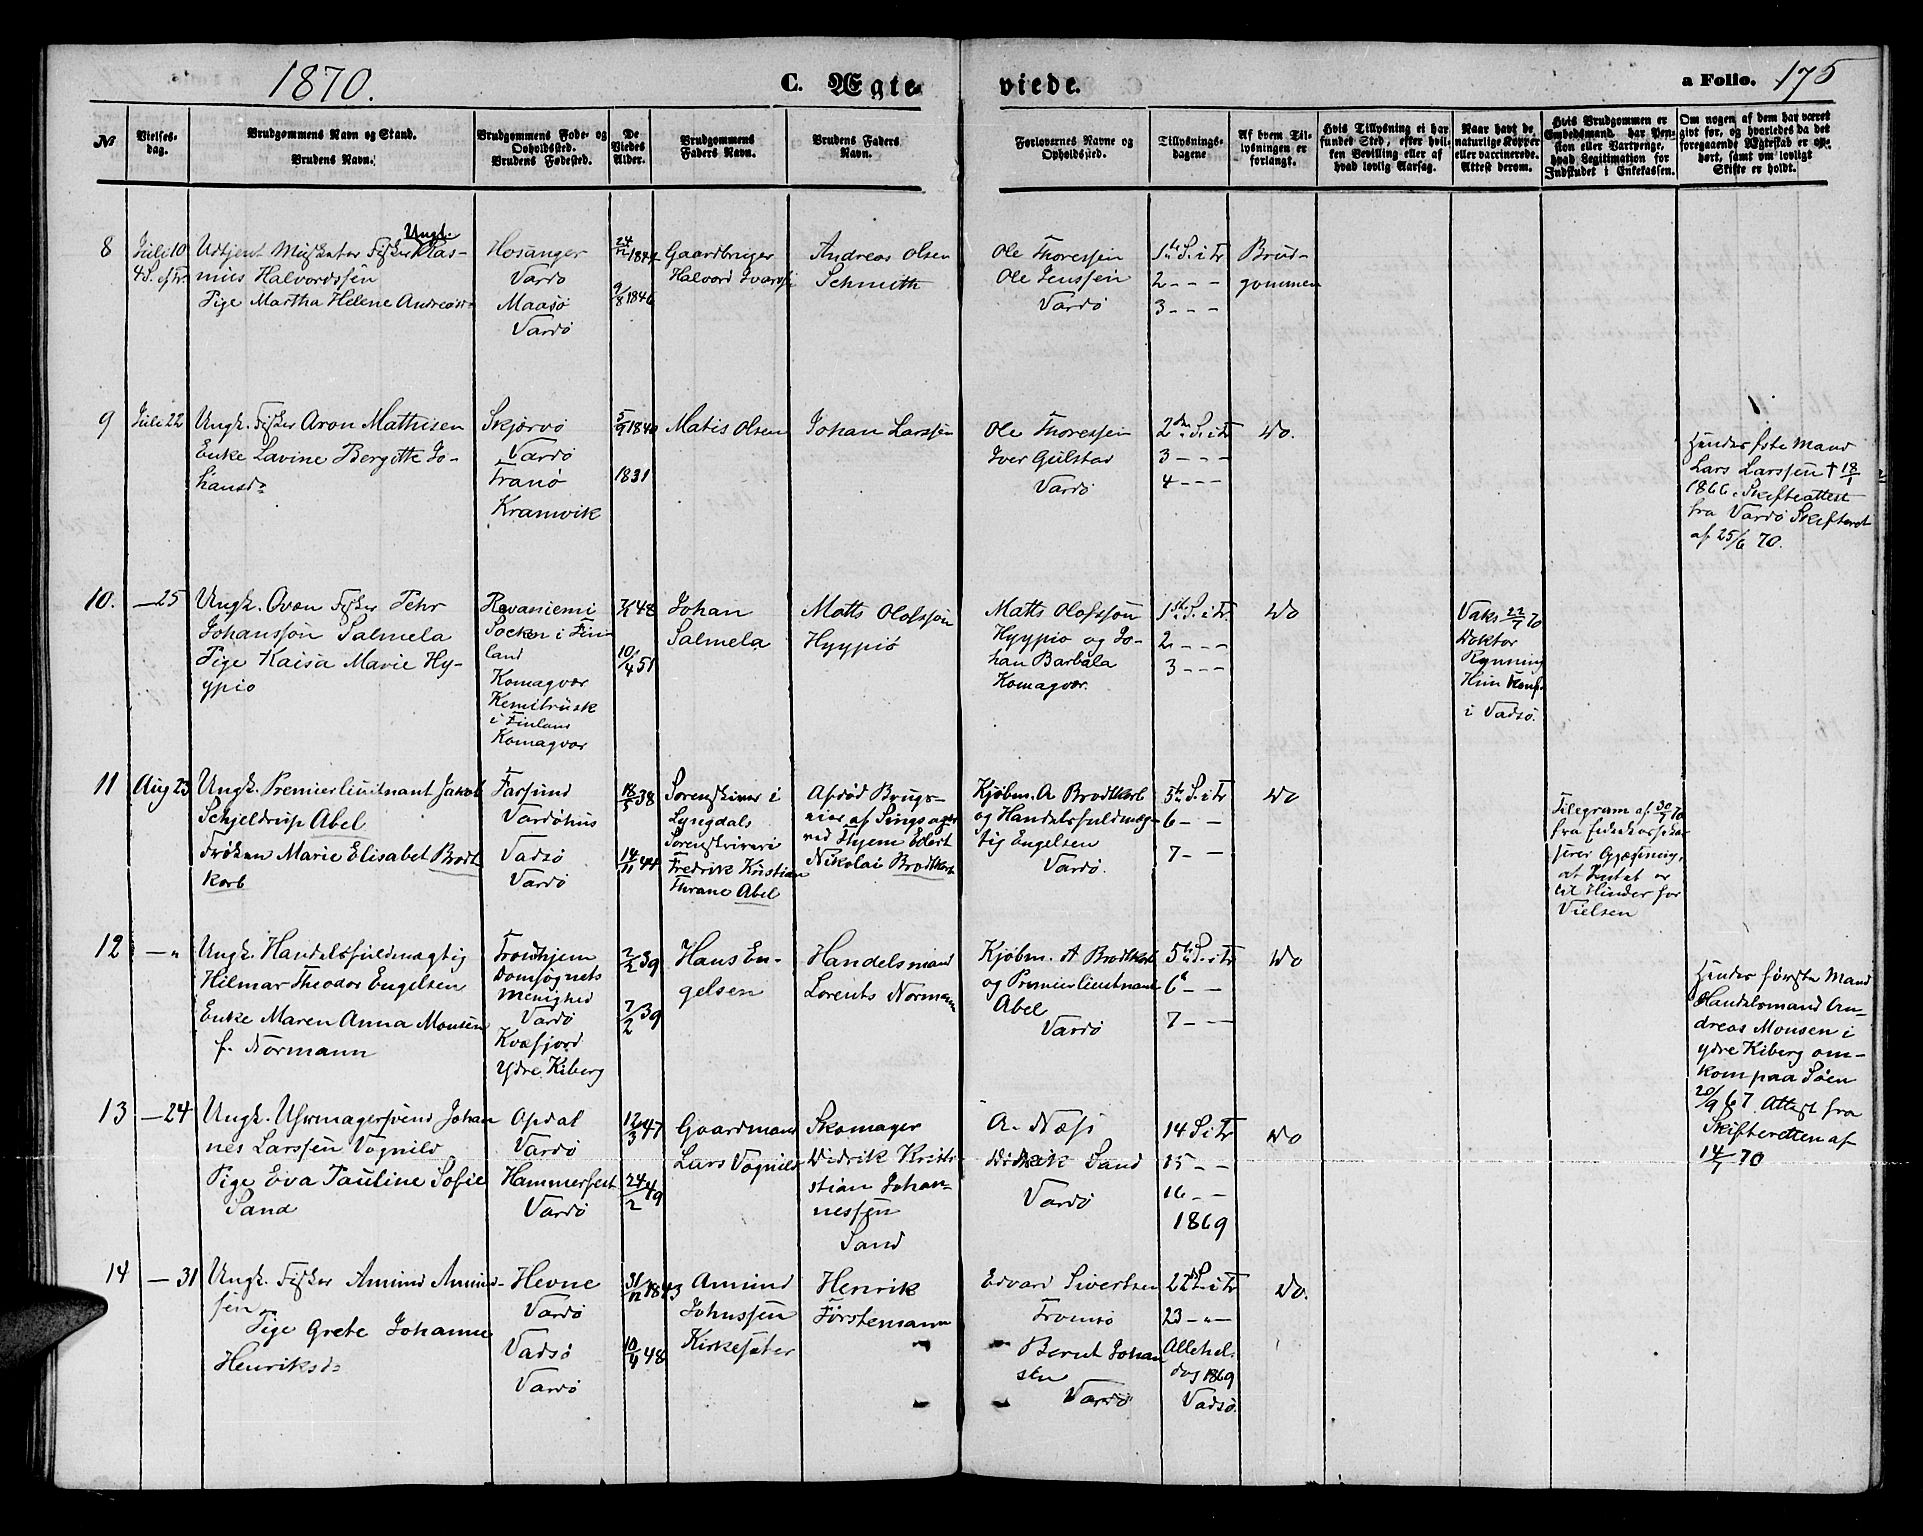 1870.
C. Ægte-
viede.
a Folio. 175
№
Vielses-
dag.
Brudgommens Navn og Stand.
Brudens Navn.
Brudgommens Føde- og
Opholdssted.
Brudens Fødested.
De
Viedes
Alder.
Brudgommens
Faders Navn.
Brudens Faders
Navn.
Forlovernes Navne og
Opholdssted.
Tillysnings-
dagene
Af hvem Til-
lysningen er
forlangt.
Hvis Tillysning ei har
fundet Sted, efter hvil-
ken Bevilling eller af
hvad lovlig Aarsag.
Naar havt de
naturlige Kopper
eller vaccinerede.
Attest derom.
Hvis Brudgommen er
Embedsmand, har Pen-
sion eller Vartpenge,
hvad Legitimation for
Indskudet i Enkekassen.
Om nogen af dem har været
givt før, og hvorledes da det
foregaaende Ægteskab er op-
hørt, samt om lovligt
Skifte er holdt.
8
Juli 10
4 S. ef Tr.
Ungk.
Udtjent Musketer Fisker Ras-
mus Halvordssøn
Pige Martha Helene Andreasd.
Hosanger
Vardø
Maasø
Vardø
9/8 1846
Gaardbruger
Halvord Ivarss
Andreas Olsen
Schmith
Ole Thoressen
Ole Jenssen
Vardø
1ste S. i Tr
2 - - -
3 - - -
Brud-
gommen
9
Juli 22
Ungk. Fisker Aron Mathisen
Enke Lavine Bergitte Jo-
hansd.
Skjervø
Vardø
Tranø
Kramvik
5/9 1840
1831
Matis Olsen
Johan Larssen
Ole Thoressen
Iver Gulstad
Vardø
2den S. i Tr
3 - - -
4 - - -
Do.
Hendes første Mand
Lars Larssen † 18/1
1866. Skifteattest
fra Vardø Skifteret
af 25/6 70.
10.
— 25
Ungk. Qvæn Fisker Pehr
Johanssøn Salmela
Pige Kaisa Marie Hy-
ypiö
Rovaniemi
Socken i Fin-
land
Komagvær
Kemiträsk
i Finland
Komagvær
7/1 48
10/4 51
Johan
Salmela
Matts Olofsson
Hyypiö
Matts Olofsson
Hyypiö og Jo-
han Barbala
Komagvær.
1ste S. i Tr.
2 - - -
3 - - -
Do
Vaks 22/7 70
Doktor
Rynning
Hun konf.
i Vadsø.
11
Aug 23
Ungk. Premierlieutnant Jakob
Schjeldrup Abel
Frøken Marie Elisabet Brodt
korb
Farsund
Vardøhus
Vadsø
Vardø
18/5 38
14/11 44
Sorenskriver i
Lyngdals
Sorenskriveri
Fredrik Kristian
Thrane Abel
Afdød Brugs-
eier af Singsager
ved Thjem Edert
Nikolai Brodtkorb
Kjøbm. A Brodtkorb
og Handelsfuldmæg-
tig Engelsen
Vardø.
5te S. i Tr
6 - -
7 - -
Do
Telegram af 30/7 70
fra Enkekassekas-
serer Gjessing,
at Intet er
til Hinder for
Vielsen
12
— "
Ungk. Handelsfuldmægtig
Hilmar Theodor Engelsen
Enke Maren Anna Monsen
f. Normann
Trondhjem
Domsognets
Menighed
Vardø
Kvæfjord
Ydre Kiberg
2/2 39
7/2 39
Hans En-
gelsen
Handelsmand
Lorents Normann
Kjøbm. A Brodtkorb
og Premierlieutnant
Abel
Vardø
5te S. i Tr
6 - -
7 - - -
Do
Hendes første Mand
Handelsmand An-
dreas Monsen i
ydre Kiberg om-
kom paa Søen
20/9 67. Attest fra
Skifteretten af
14/7 70
13
— 24
Ungk. Uhrmagersvend Johan
nes Larssen Vognild
Pige Eva Pauline Sofie
Sand
Opdal
Vardø
Hammerfest
Vardø
12/3 47
24/2 49
Gaardmand
Lars Vognild
Skomager
Didrik Kristi-
stian Johan-
nessen
Sand
A. Næss
Didrik Sand
Vardø
14 S i Tr
15 - -
16 - -
1869
Do
14
— 31
Ungk. Fisker Amund Amund-
sen
Pige Grete Johanne
Henriksd.
Hevne
Vardø
Vadsø
Vardø
31/12 1843
10/4 48
Amund
Johnssen
Kirkesæter
Henrik
Förstemann
Edvard Sivertsen
Tromsø
Bernt Johan
sen
Vardø
22d S. i Tr
23 - " -
Allehel.
dag 1869
Vadsø.
Do.